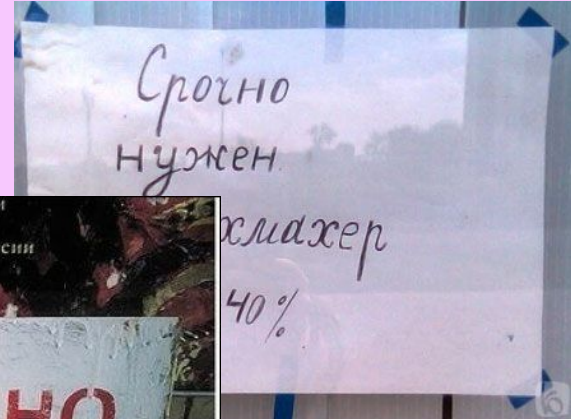 Срочно
нужен
хмахер
40%
сии
но